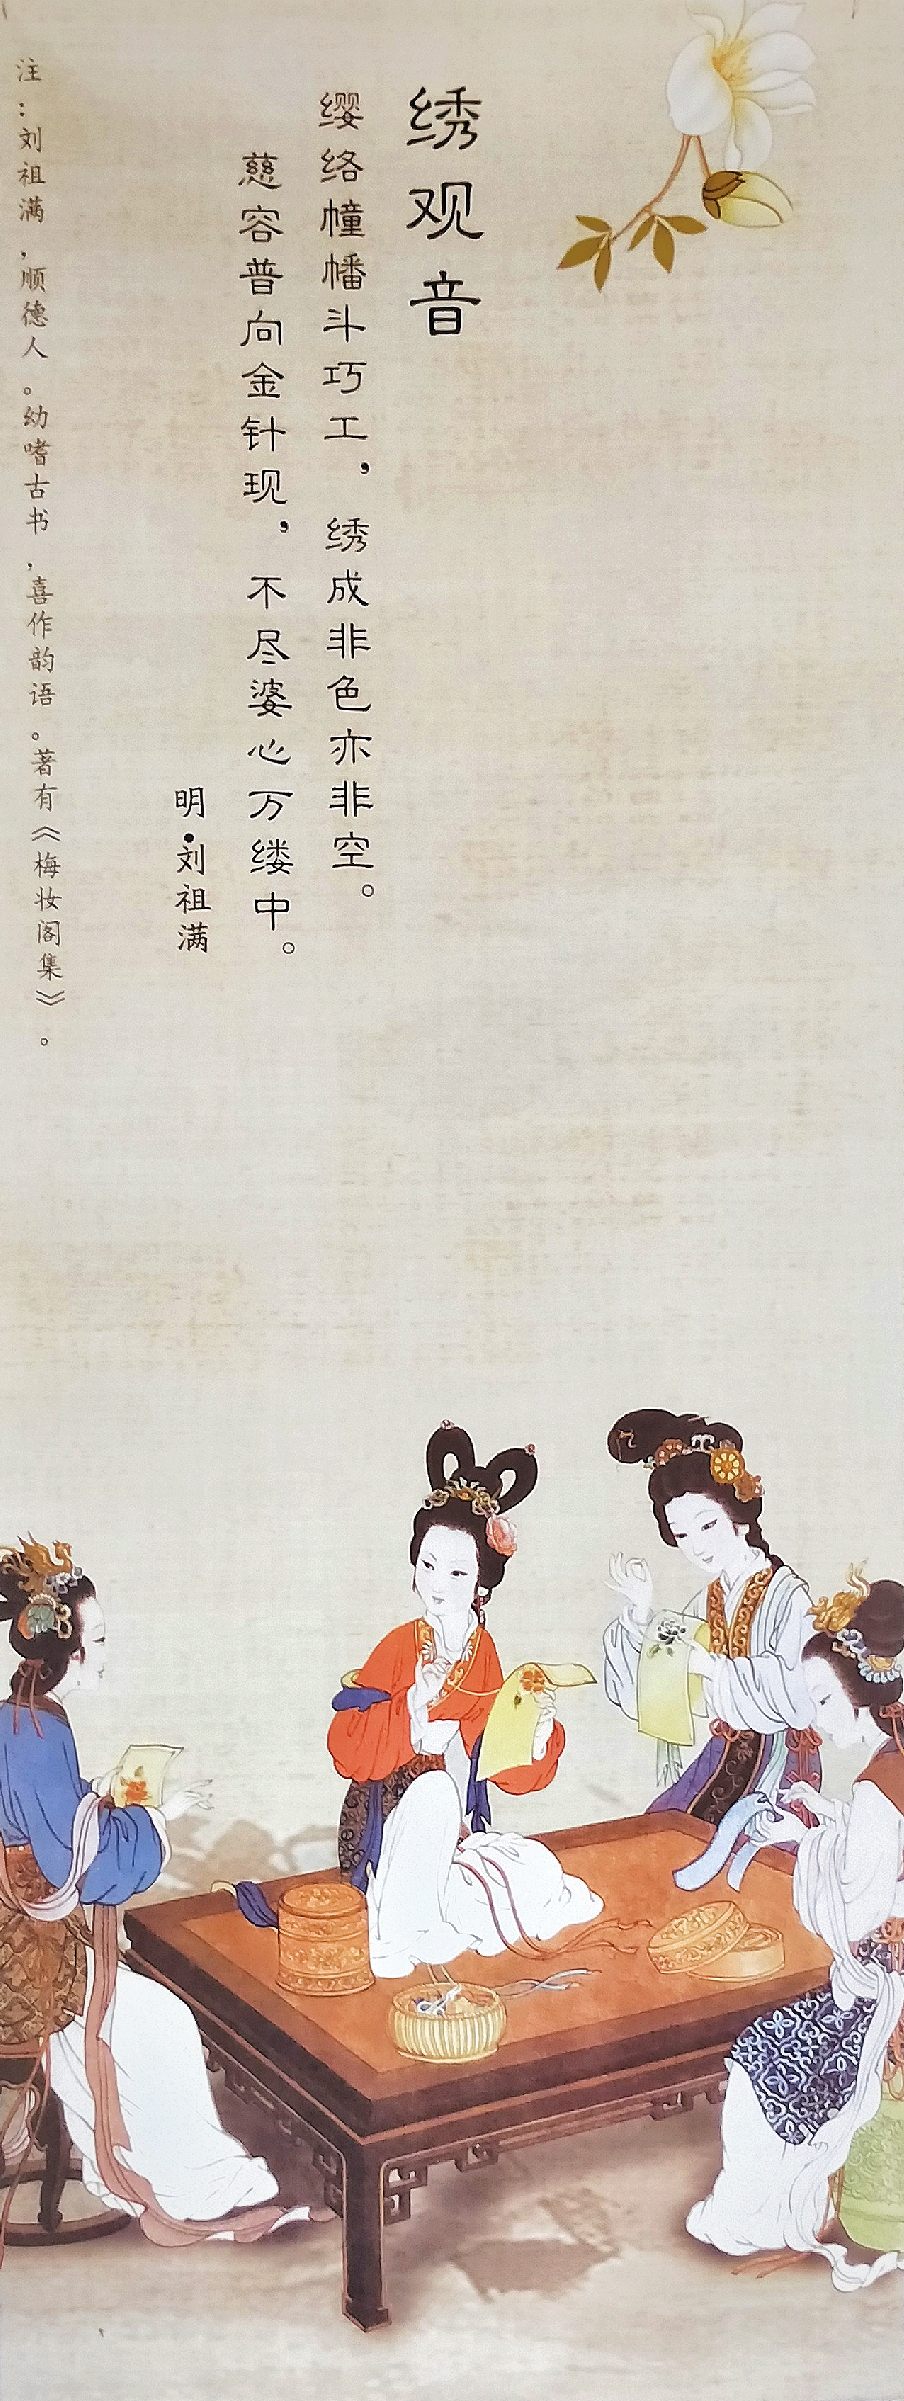 绣观音
缨络幢幡斗巧工，绣成非色亦非空。
慈容普向金针现，不尽婆心万缕中。
明·刘祖满
注：刘祖满，顺德人。幼嗜古书，喜作韵语。著有《梅妆阁集》。